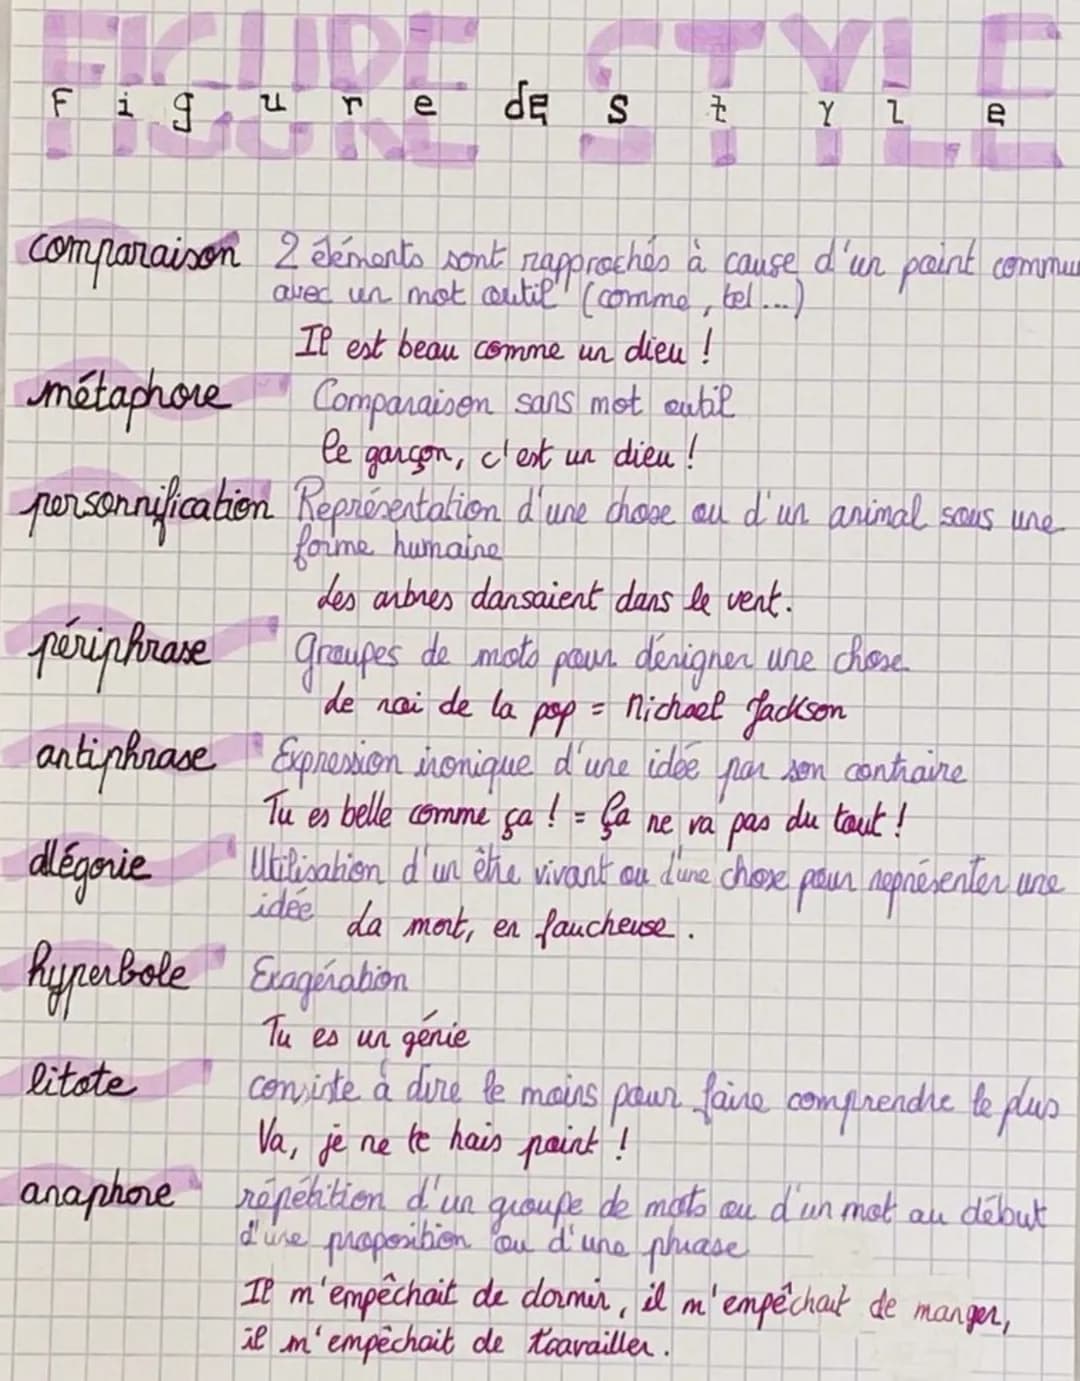 FIGURE STYLE
Figure de style
comparaison 2 éléments sont rapprochés à cause d'un point commun
avec un mot outil (comme, tel...)
Il est beau comme un dieu !
métaphore Comparaison sans mot outil
Ce garçon, c'est un dieu !
personnification Représentation d'une chose ou d'un animal sous une
forme humaine
Les arbres dansaient dans le vent.
périphrase Groupes de mots pour désigner une chose
Le roi de la pop = Michael Jackson
antiphrase Expression ironique d'une idée par son contraire
Tu es belle comme ça ! = Ça ne va pas du tout !
allégorie Utilisation d'un être vivant ou d'une chose pour représenter une
idée
La mort, en faucheuse.
hyperbole Exagération
Tu es un génie
litote consiste à dire le moins pour faire comprendre le plus
Va, je ne te hais point !
anaphore répétition d'un groupe de mots ou d'un mot au début
d'une proposition ou d'une phrase
Il m'empêchait de dormir, il m'empêchait de manger,
il m'empêchait de travailler.